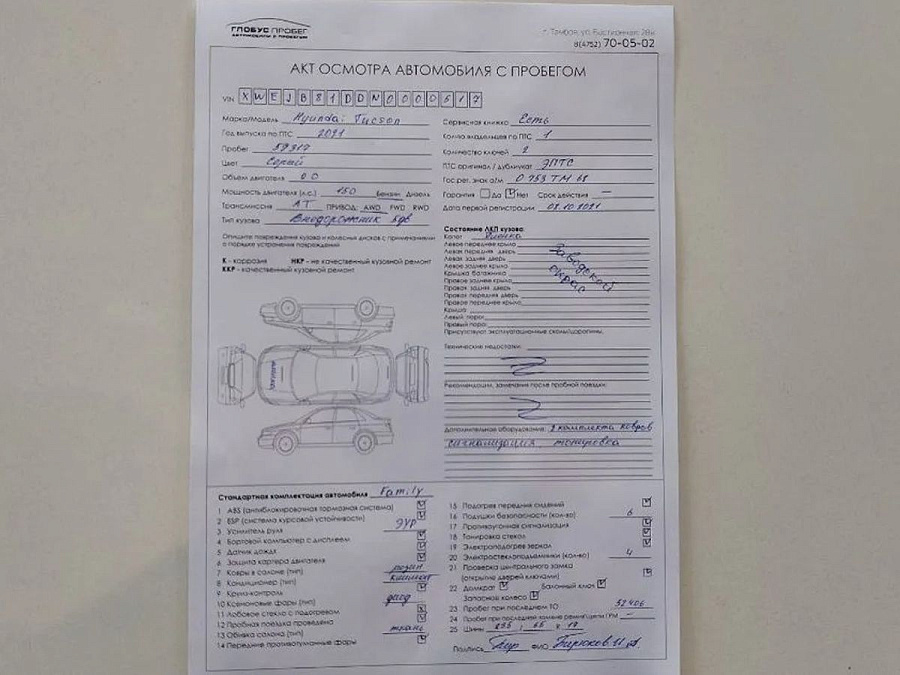 ГЛОБУС ПРОБЕГ
АВТОМОБИЛИ С ПРОБЕГОМ
г. Тамбов, ул. Бастионная, 28и
8(4752) 70-05-02
АКТ ОСМОТРА АВТОМОБИЛЯ С ПРОБЕГОМ
VIN XWEJB81DDN0000617
Марка/Модель Hyundai Tucson
Год выпуска по ПТС 2021
Пробег
Цвет Серый
Объем двигателя
Мощность двигателя (л.с.) 150 Бензин Дизель
Трансмиссия АТ ПРИВОД: AWD FWD RWD
Тип кузова Внедорожник 5дв
Опишите повреждения кузова и колесных дисков с примечаниями
о порядке устранения повреждений
К - коррозия НКР - не качественный кузовной ремонт
ККР - качественный кузовной ремонт
Сервисная книжка Есть
Кол-во владельцев по ПТС 1
Количество ключей 2
ПТС оригинал / дубликат ЭПТС
Гос.рег. знак а/м О 753 ТМ 68
Гарантия Да Нет Срок действия —
Дата первой регистрации 08.10.2021
Состояние ЛКП кузова:
Капот Пленка
Левое переднее крыло
Левая передняя дверь
Левая задняя дверь
Левое заднее крыло
Крышка багажника
Правое заднее крыло
Правая задняя дверь
Правая передняя дверь
Правое переднее крыло
Крыша
Левый порог
Правый порог
Заводской
окрас
Присутствуют эксплуатационные сколы/царапины.
Технические недостатки:
Рекомендации, замечания после пробной поездки:
Дополнительное оборудование: 2 комплекта ковров
сигнализация тонировка
Стандартная комплектация автомобиля Family
1 ABS (антиблокировочная тормозная система)
2 ESP (система курсовой устойчивости)
3 Усилитель руля ЭУР
4 Бортовой компьютер с дисплеем
5 Датчик дождя
6 Защита картера двигателя
7 Ковры в салоне (тип) резин
8 Кондиционер (тип) климат
9 Круиз-контроль
10 Ксеноновые фары (тип) диод
11 Лобовое стекло с подогревом
12 Пробная поездка проведена
13 Обивка салона (тип) ткань
14 Передние противотуманные фары
15 Подогрев передних сидений
16 Подушки безопасности (кол-во) 6
17 Противоугонная сигнализация
18 Тонировка стекол
19 Электроподогрев зеркал
20 Электростеклоподъемники (кол-во) 4
21 Проверка центрального замка
(открытие дверей ключами)
22 Домкрат Балонный ключ
Запасное колесо
23 Пробег при последнем ТО 52406
24 Пробег при последней замене ремня/цепи ГРМ —
25 Шины
Подпись ФИО Бирюков И.А.